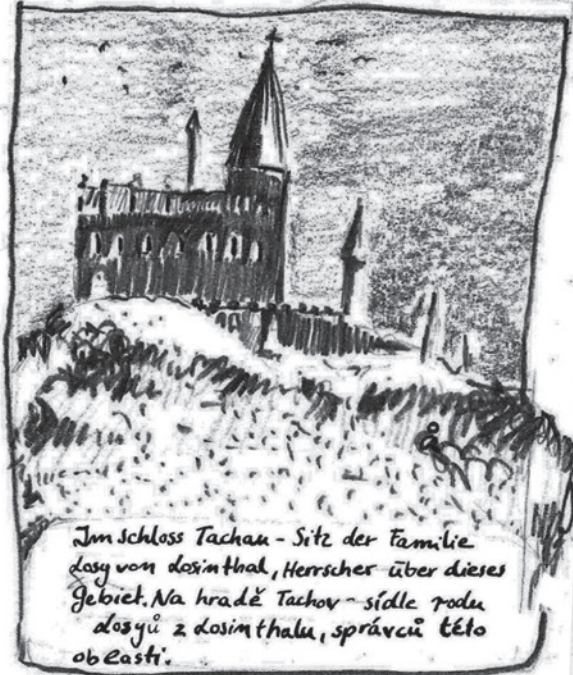 Im schloss Tachau - Sitz der Familie
Losy von Losinthal, Herrscher über dieses
Gebiet. Na hradě Tachov - sídle rodu
Losyů z Losinthalu, správců této
oblasti.